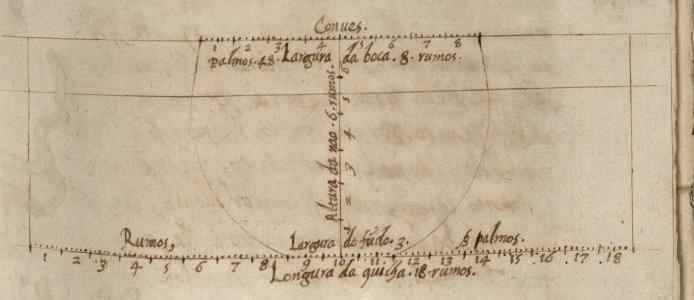 Conues.
1 2 3 4 5 6 7 8
palmos. 48. Largura da boca. 8. rumos.
Altura da nao. 6. rumos.
1 2 3 4 5 6
Rumos, Largura do fũdo. 3. palmos.
1 2 3 4 5 6 7 8 9 10 11 12 13 14 15 16 17 18
Longura da quilha. 18. rumos.